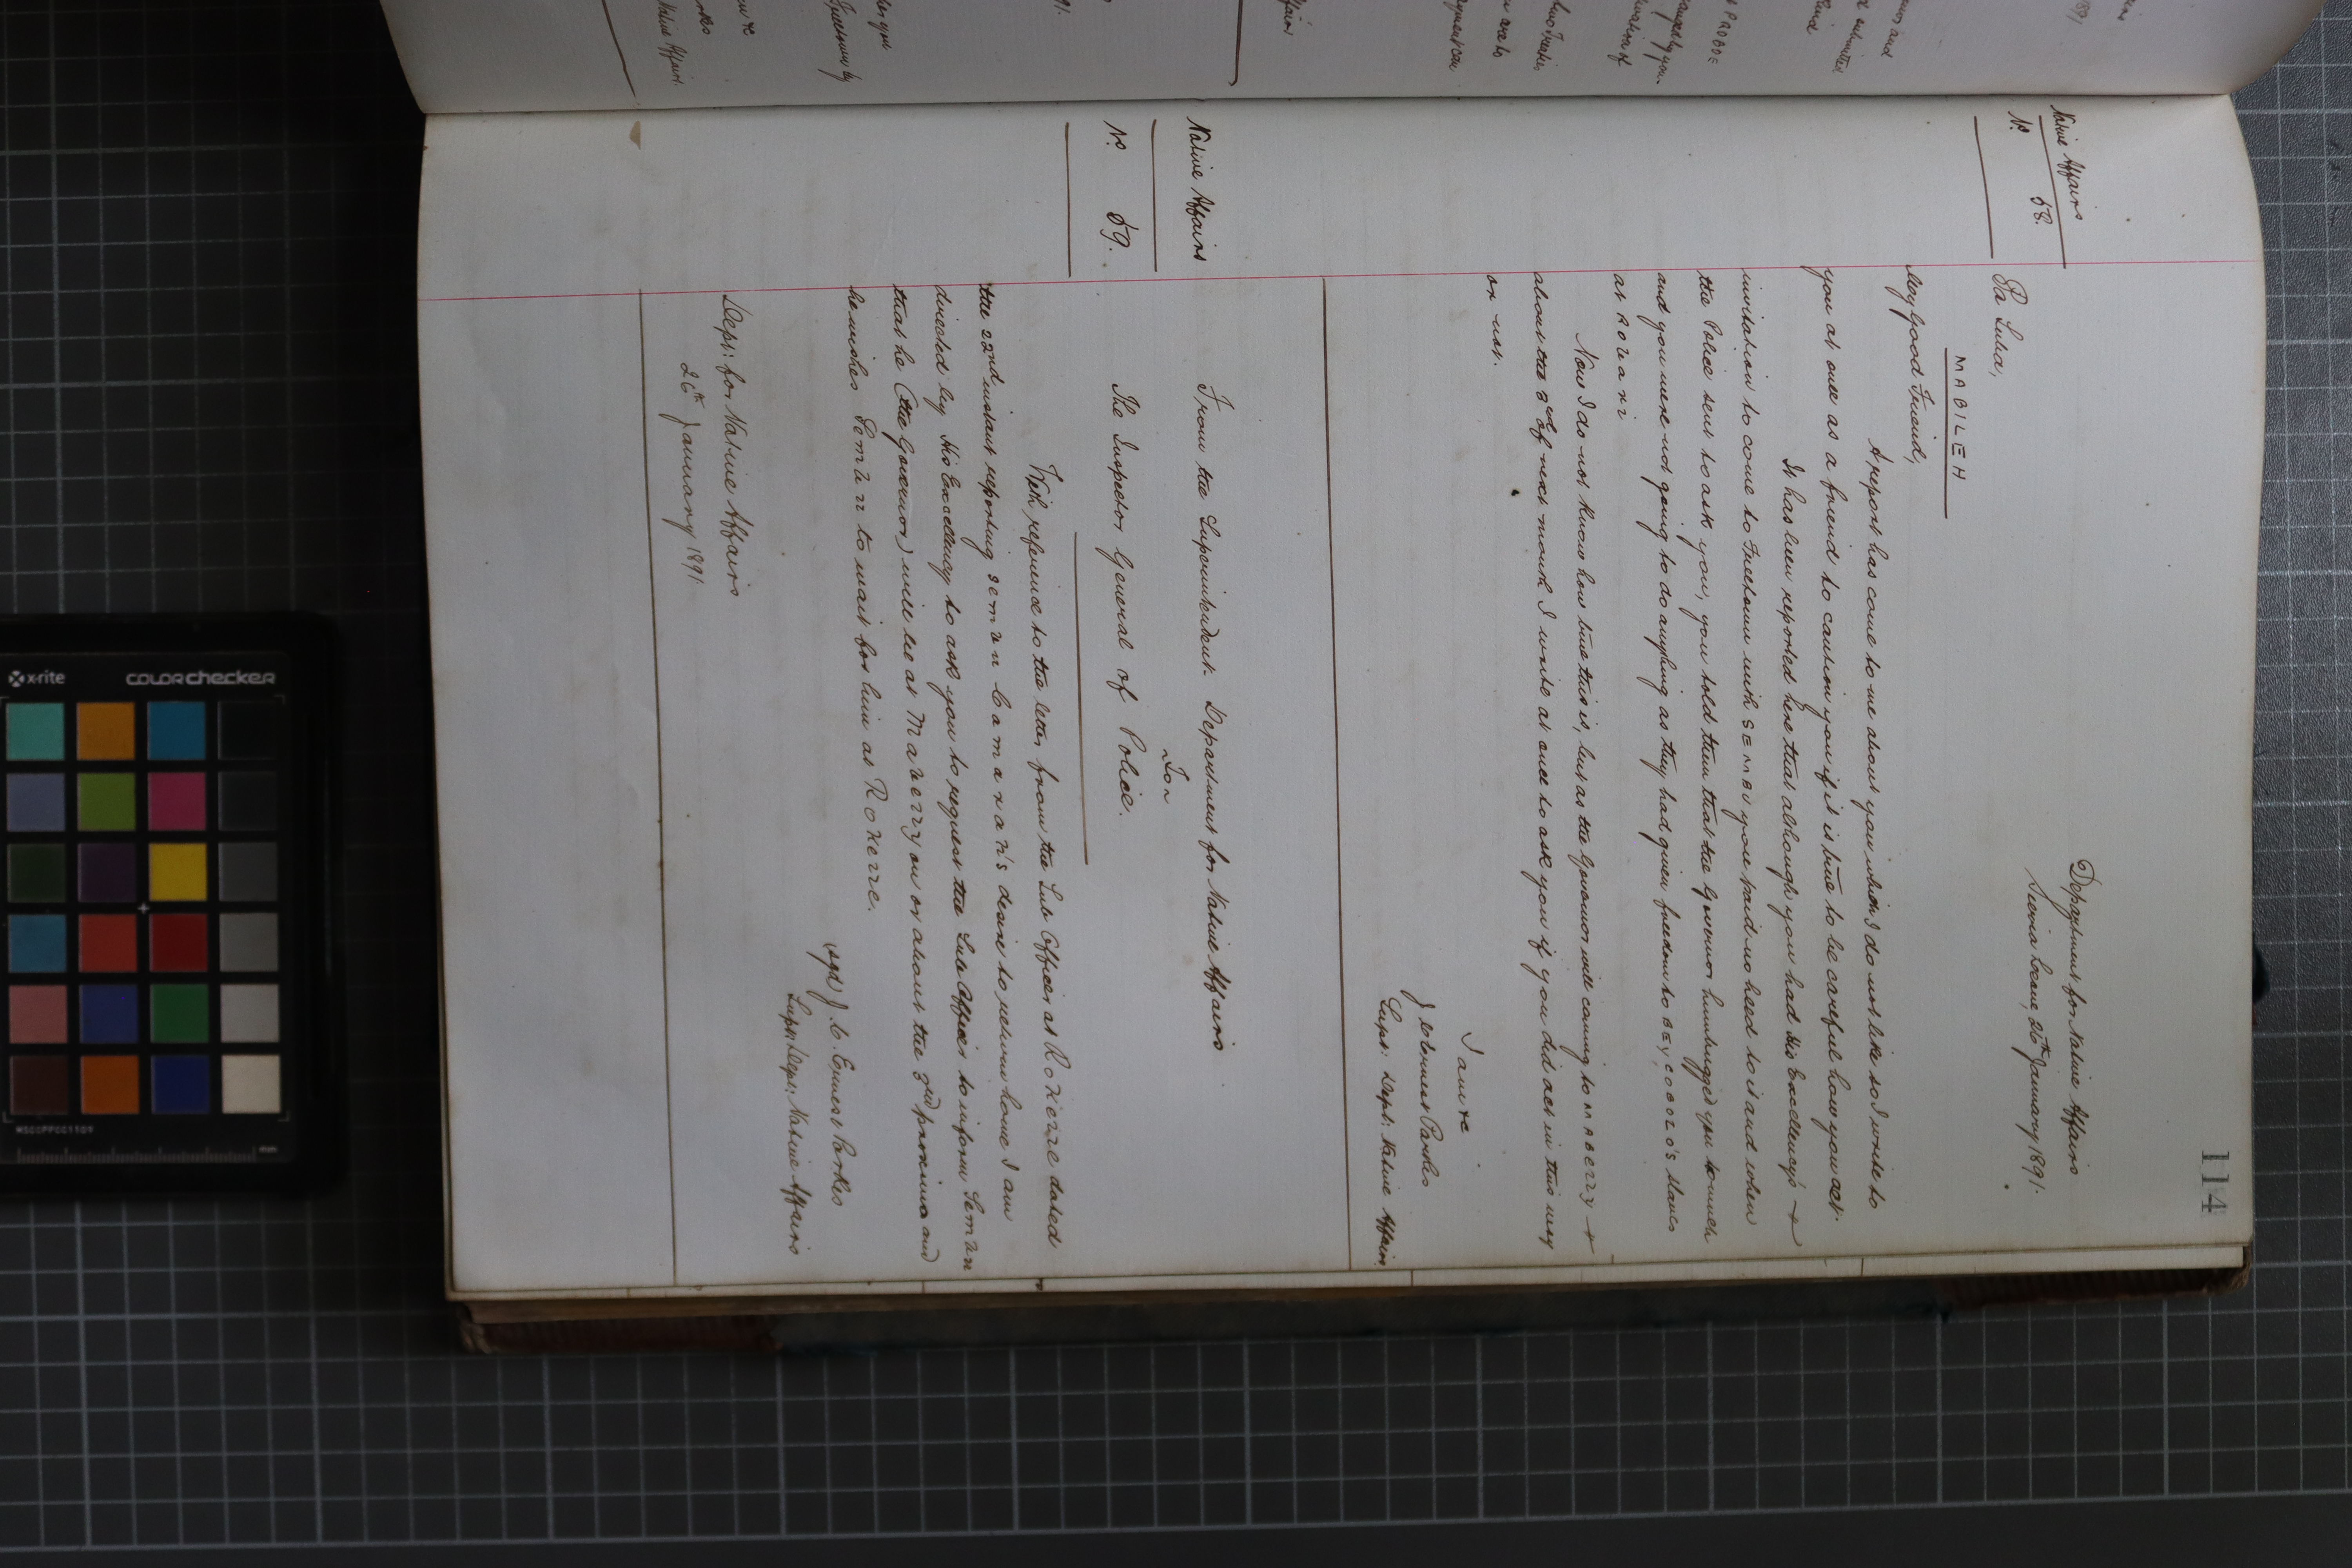 114
Native Affairs
No. 58.
Department for Native Affairs
Sierra Leone, 26th January 1891.
Pa Suba,
MABILEH
My Good Friend,
A report has come to me about you which I do not like so I write to
you at once as a friend to caution you if it is true to be careful how you act.
It has been reported here that although you had His Excellency's
invitation to come to Freetown with you paid no heed to it and when
the Police sent to ask you, you told them that the Governor humbugged you too much
and you were not going to do anything as they had given freedom to slaves
at
Now I do not know how true this is, but as the Governor will coming to
about the 3rd of next month I write at once to ask you if you did act in this way
or not.
I am &c
J C Ernest Parkes
Supt: Dept: Native Affairs
Native Affairs
No. 59.
From the Superintendent Department for Native Affairs
To
The Inspector General of Police.
With reference to the letter from the Sub Officer at dated
the 22nd instant reporting desire to return home I am
directed by His Excellency to ask you to request the Sub Officer to inform
that he (the Governor) will be at on or about the 3rd proximo and
he wishes to wait for him at
(sgd) J. C. Ernest Parkes
Supt: Dept: Native Affairs
Dept: for Native Affairs
26th January 1891.
x-rite
colorchecker
MSCCPPCC1109
mm